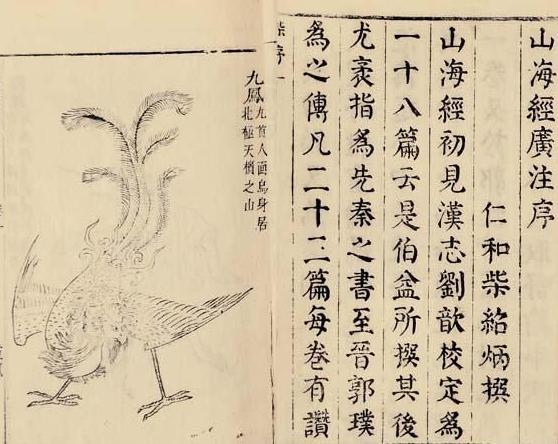 山海經廣注序
仁和柴紹炳撰
山海經初見漢志劉歆校定為
一十八篇云是伯益所撰其後
尤袤指為先秦之書至晉郭璞
為之傳凡二十三篇每卷有讚
柴序一
九鳳
九首人面鳥身居
北極天櫃之山